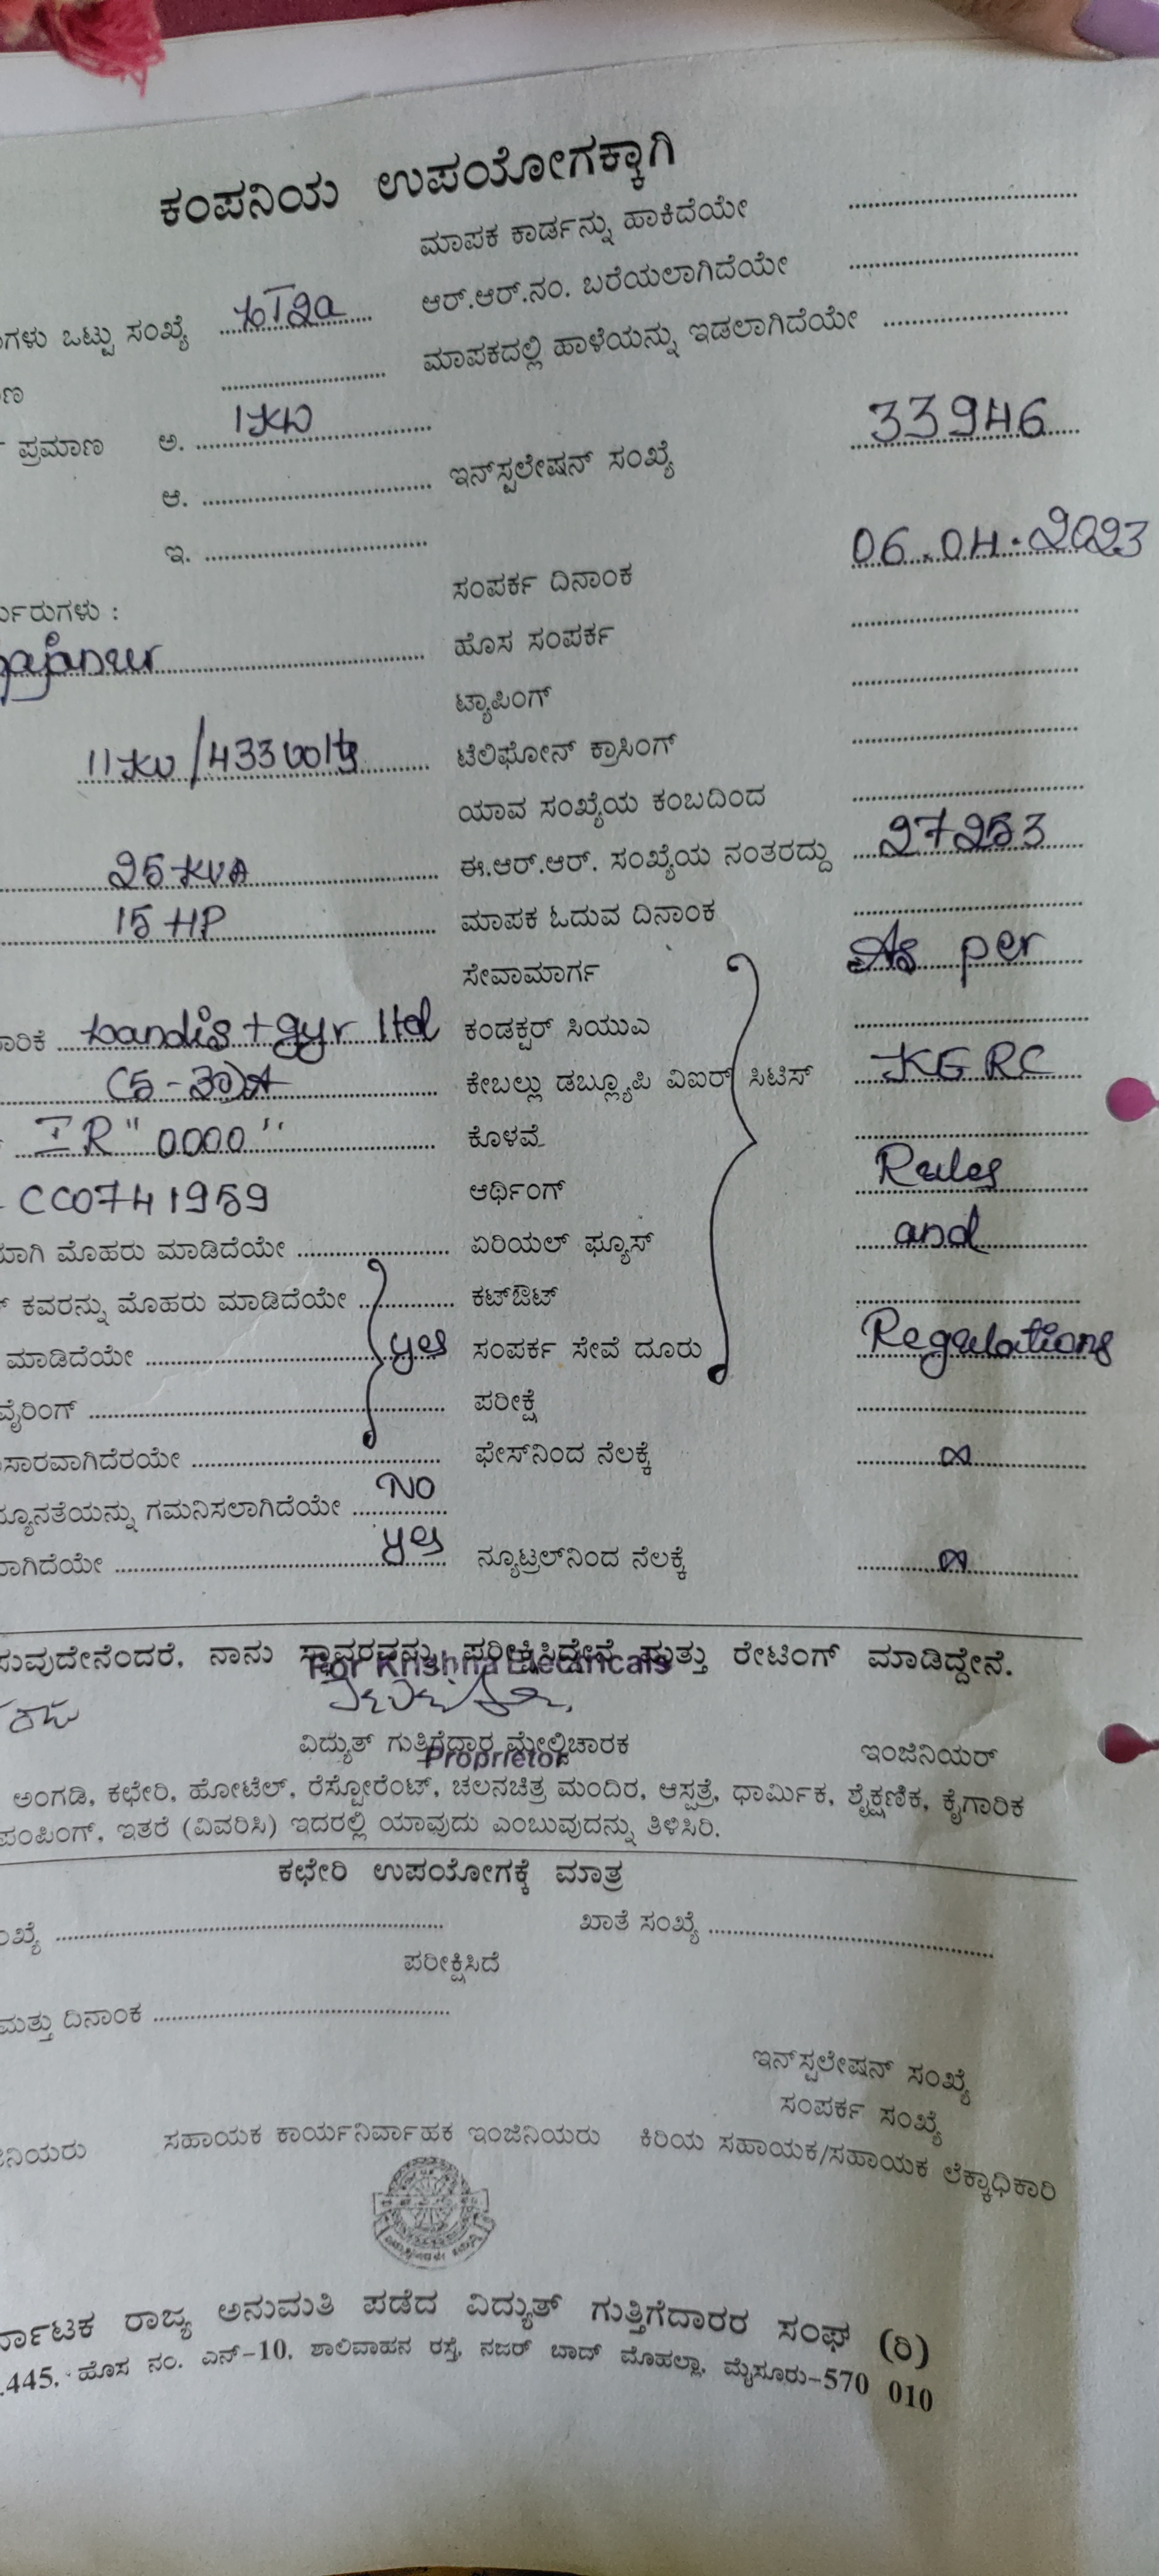 ಕಂಪನಿಯ ಉಪಯೋಗಕ್ಕಾಗಿ
ಮಾಪಕ ಕಾರ್ಡನ್ನು ಹಾಕಿದೆಯೇ
ಗಳು ಒಟ್ಟು ಸಂಖ್ಯೆ ಆರ್.ಆರ್.ನಂ. ಬರೆಯಲಾಗಿದೆಯೇ
ಮಾಪಕದಲ್ಲಿ ಹಾಳೆಯನ್ನು ಇಡಲಾಗಿದೆಯೇ
ಪ್ರಮಾಣ ಅ. 1KW
ಆ. ಇನ್‌ಸ್ಟಲೇಷನ್ ಸಂಖ್ಯೆ 33946
ಇ.
ಸಂಪರ್ಕ ದಿನಾಂಕ 06.04.2023
ರುಗಳು : ಹೊಸ ಸಂಪರ್ಕ
ಟ್ಯಾಪಿಂಗ್
11KV/433volts ಟೆಲಿಫೋನ್ ಕ್ರಾಸಿಂಗ್
ಯಾವ ಸಂಖ್ಯೆಯ ಕಂಬದಿಂದ
25KVA ಈ.ಆರ್.ಆರ್. ಸಂಖ್ಯೆಯ ನಂತರದ್ದು 27253
15 HP ಮಾಪಕ ಓದುವ ದಿನಾಂಕ
ಸೇವಾಮಾರ್ಗ As per
ಾರಿಕೆ Landis + gyr ltd ಕಂಡಕ್ಟರ್ ಸಿಯುಎ
(5-30)A ಕೇಬಲ್ಲು ಡಬ್ಲ್ಯೂಪಿ ವಿಐರ್ ಸಿಟಿಸ್ KERC
IR "0000" ಕೊಳವೆ
CC0741959 ಆರ್ಥಿಂಗ್ Rules
ಯಾಗಿ ಮೊಹರು ಮಾಡಿದೆಯೇ ಏರಿಯಲ್ ಫ್ಯೂಸ್ and
ಕವರನ್ನು ಮೊಹರು ಮಾಡಿದೆಯೇ ಕಟ್‌ಔಟ್
ಮಾಡಿದೆಯೇ yes ಸಂಪರ್ಕ ಸೇವೆ ದೂರು Regulations
ವೈರಿಂಗ್ ಪರೀಕ್ಷೆ
ಸಾರವಾಗಿದೆರಯೇ ಫೇಸ್‌ನಿಂದ ನೆಲಕ್ಕೆ ∞
ನ್ಯೂನತೆಯನ್ನು ಗಮನಿಸಲಾಗಿದೆಯೇ NO
ಾಗಿದೆಯೇ yes ನ್ಯೂಟ್ರಲ್‌ನಿಂದ ನೆಲಕ್ಕೆ ∞
ಸುವುದೇನೆಂದರೆ, ನಾನು ಸ್ಥಾವರವನ್ನು ಪರೀಕ್ಷಿಸಿದ್ದೇನೆ ಮತ್ತು ರೇಟಿಂಗ್ ಮಾಡಿದ್ದೇನೆ.
For Krishna Electricals
ವಿದ್ಯುತ್ ಗುತ್ತಿಗೆದಾರ ಮೇಲ್ವಿಚಾರಕ ಇಂಜಿನಿಯರ್
Proprietor
ಅಂಗಡಿ, ಕಛೇರಿ, ಹೋಟೆಲ್, ರೆಸ್ಟೋರೆಂಟ್, ಚಲನಚಿತ್ರ ಮಂದಿರ, ಆಸ್ಪತ್ರೆ, ಧಾರ್ಮಿಕ, ಶೈಕ್ಷಣಿಕ, ಕೈಗಾರಿಕ
ಪಂಪಿಂಗ್, ಇತರೆ (ವಿವರಿಸಿ) ಇದರಲ್ಲಿ ಯಾವುದು ಎಂಬುವುದನ್ನು ತಿಳಿಸಿರಿ.
ಕಛೇರಿ ಉಪಯೋಗಕ್ಕೆ ಮಾತ್ರ
ಖಾತೆ ಸಂಖ್ಯೆ
ಪರೀಕ್ಷಿಸಿದೆ
ಮತ್ತು ದಿನಾಂಕ
ಇನ್‌ಸ್ಪಲೇಷನ್ ಸಂಖ್ಯೆ
ಸಂಪರ್ಕ ಸಂಖ್ಯೆ
ನಿಯರು ಸಹಾಯಕ ಕಾರ್ಯನಿರ್ವಾಹಕ ಇಂಜಿನಿಯರು ಕಿರಿಯ ಸಹಾಯಕ/ಸಹಾಯಕ ಲೆಕ್ಕಾಧಿಕಾರಿ
ರ್ನಾಟಕ ರಾಜ್ಯ ಅನುಮತಿ ಪಡೆದ ವಿದ್ಯುತ್ ಗುತ್ತಿಗೆದಾರರ ಸಂಘ (ರಿ)
.445, ಹೊಸ ನಂ. ಎನ್-10, ಶಾಲಿವಾಹನ ರಸ್ತೆ, ನಜರ್ ಬಾದ್ ಮೊಹಲ್ಲಾ, ಮೈಸೂರು-570 010